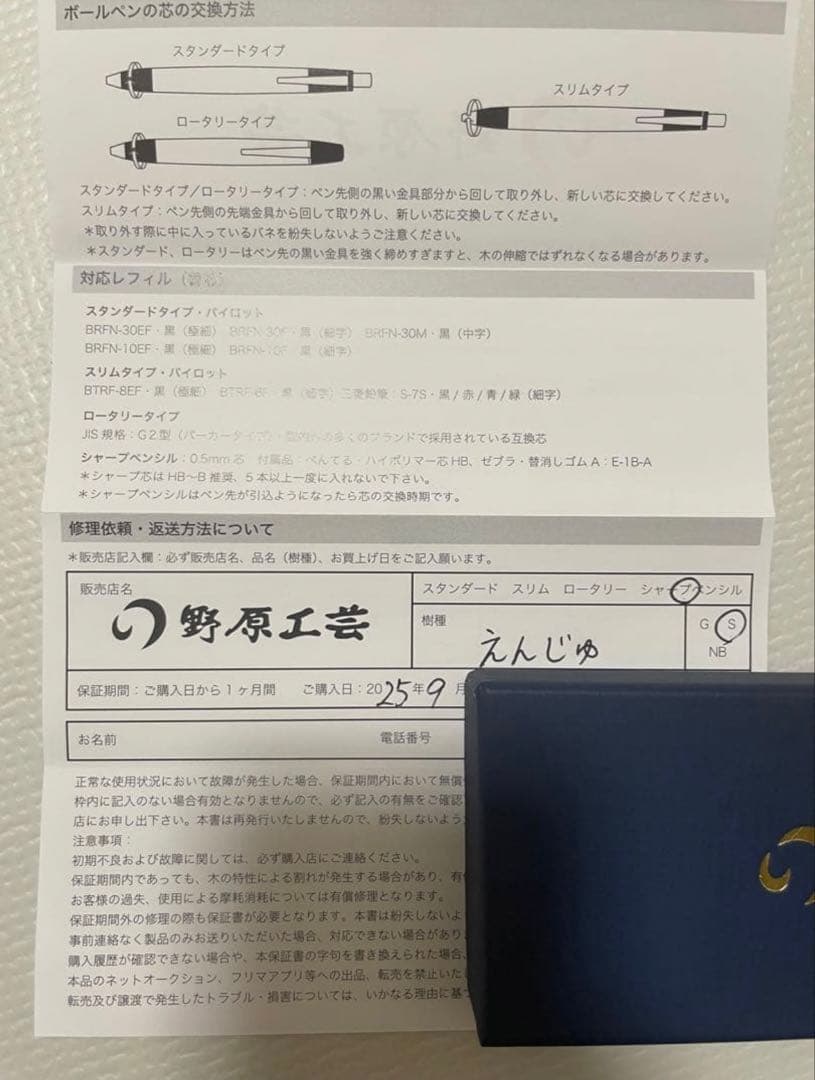 ボールペンの芯の交換方法
スタンダードタイプ
スリムタイプ
ロータリータイプ
スタンダードタイプ／ロータリータイプ：ペン先側の黒い金具部分から回して取り外し、新しい芯に交換してください。
スリムタイプ：ペン先側の先端金具から回して取り外し、新しい芯に交換してください。
＊取り外す際に中に入っているバネを紛失しないようご注意ください。
＊スタンダード、ロータリーはペン先の黒い金具を強く締めすぎますと、木の伸縮ではずれなくなる場合があります。
対応レフィル（替芯）
スタンダードタイプ・パイロット
BRFN-30EF・黒（極細） BRFN-30F・黒（細字） BRFN-30M・黒（中字）
BRFN-10EF・黒（極細） BRFN-10F・黒（細字）
スリムタイプ・パイロット
BTRF-8EF・黒（極細） BTRF-8F・黒（細字）三菱鉛筆：S-7S・黒 / 赤 / 青 / 緑（細字）
ロータリータイプ
JIS 規格：G２型（パーカータイプ）・国内外の多くのブランドで採用されている互換芯
シャープペンシル：0.5mm 芯 付属品：ぺんてる・ハイポリマー芯 HB、ゼブラ・替消しゴム A：E-1B-A
＊シャープ芯は HB～B 推奨、５本以上一度に入れないで下さい。
＊シャープペンシルはペン先が引込ようになったら芯の交換時期です。
修理依頼・返送方法について
＊販売店記入欄：必ず販売店名、品名（樹種）、お買上げ日をご記入願います。
販売店名
野原工芸
スタンダード スリム ロータリー シャープペンシル
樹種
えんじゅ
G S
NB
保証期間：ご購入日から１ヶ月間 ご購入日：2025年9月
お名前 電話番号
正常な使用状況において故障が発生した場合、保証期間内において無償
枠内に記入のない場合有効となりませんので、必ず記入の有無をご確認
店にお申し出下さい。本書は再発行いたしませんので、紛失しないよう
注意事項：
初期不良および故障に関しては、必ず購入店にご連絡ください。
保証期間内であっても、木の特性による割れが発生する場合があり、有
お客様の過失、使用による摩耗消耗については有償修理となります。
保証期間外の修理の際も保証書が必要となります。本書は紛失しないよ
事前連絡なく製品のみお送りいただいた場合、対応できない場合があり
購入履歴が確認できない場合や、本保証書の字句を書き換えられた場合、
本品のネットオークション、フリマアプリ等への出品、転売を禁止いた
転売及び譲渡で発生したトラブル・損害については、いかなる理由に基